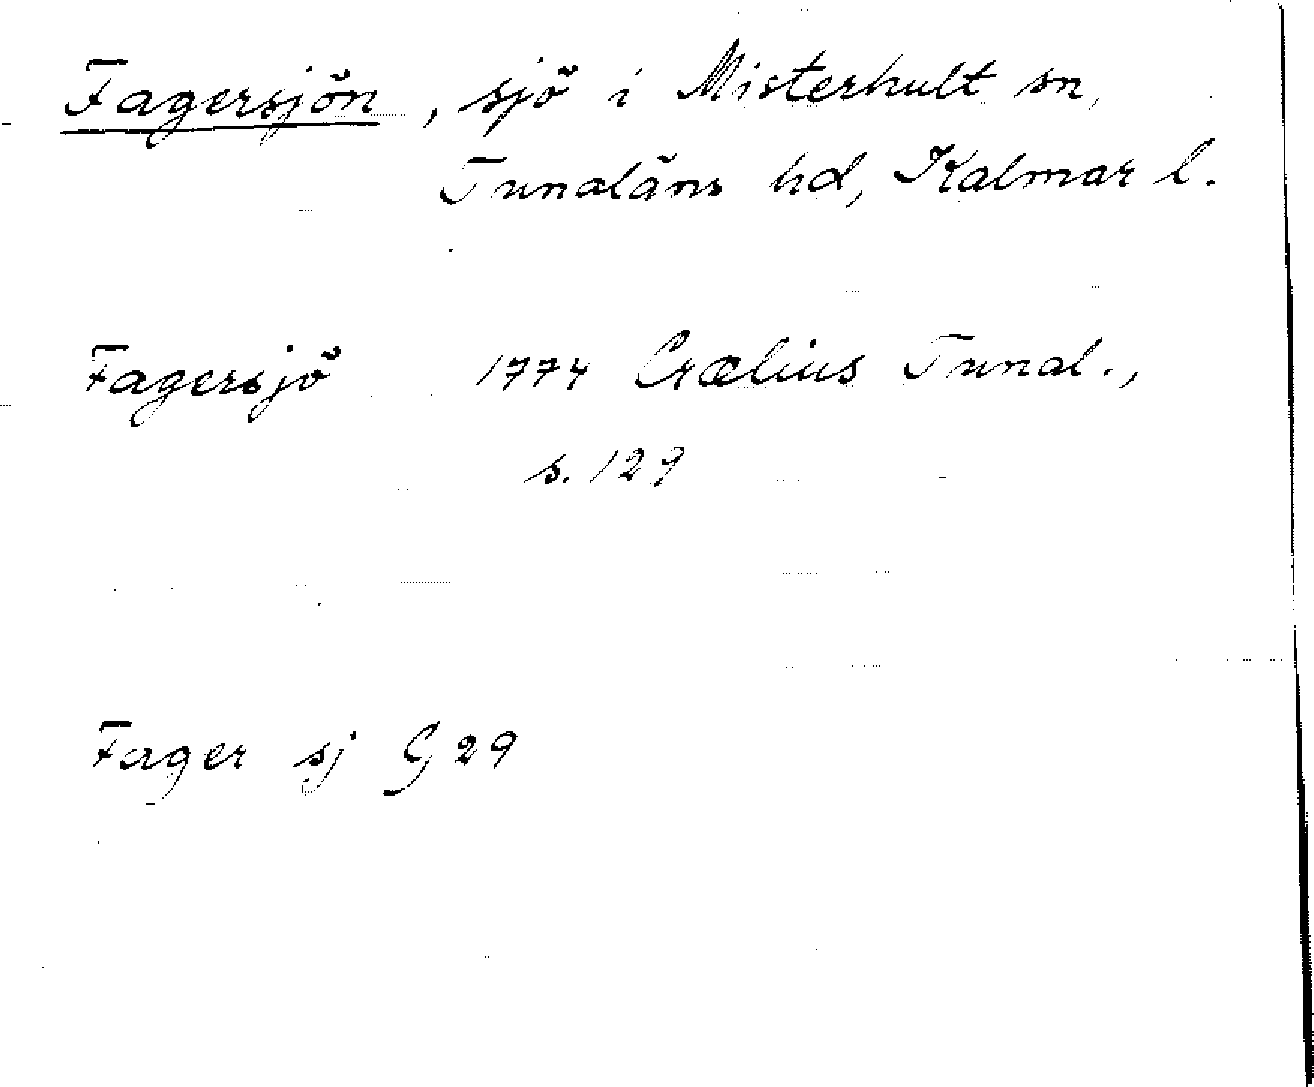 Fagersjön, sjö i Misterhult sn,
Tunaläns hd, Kalmar l.
Fagersjö 1774 Crælius Tunal.,
s. 129
Fager sj G 29